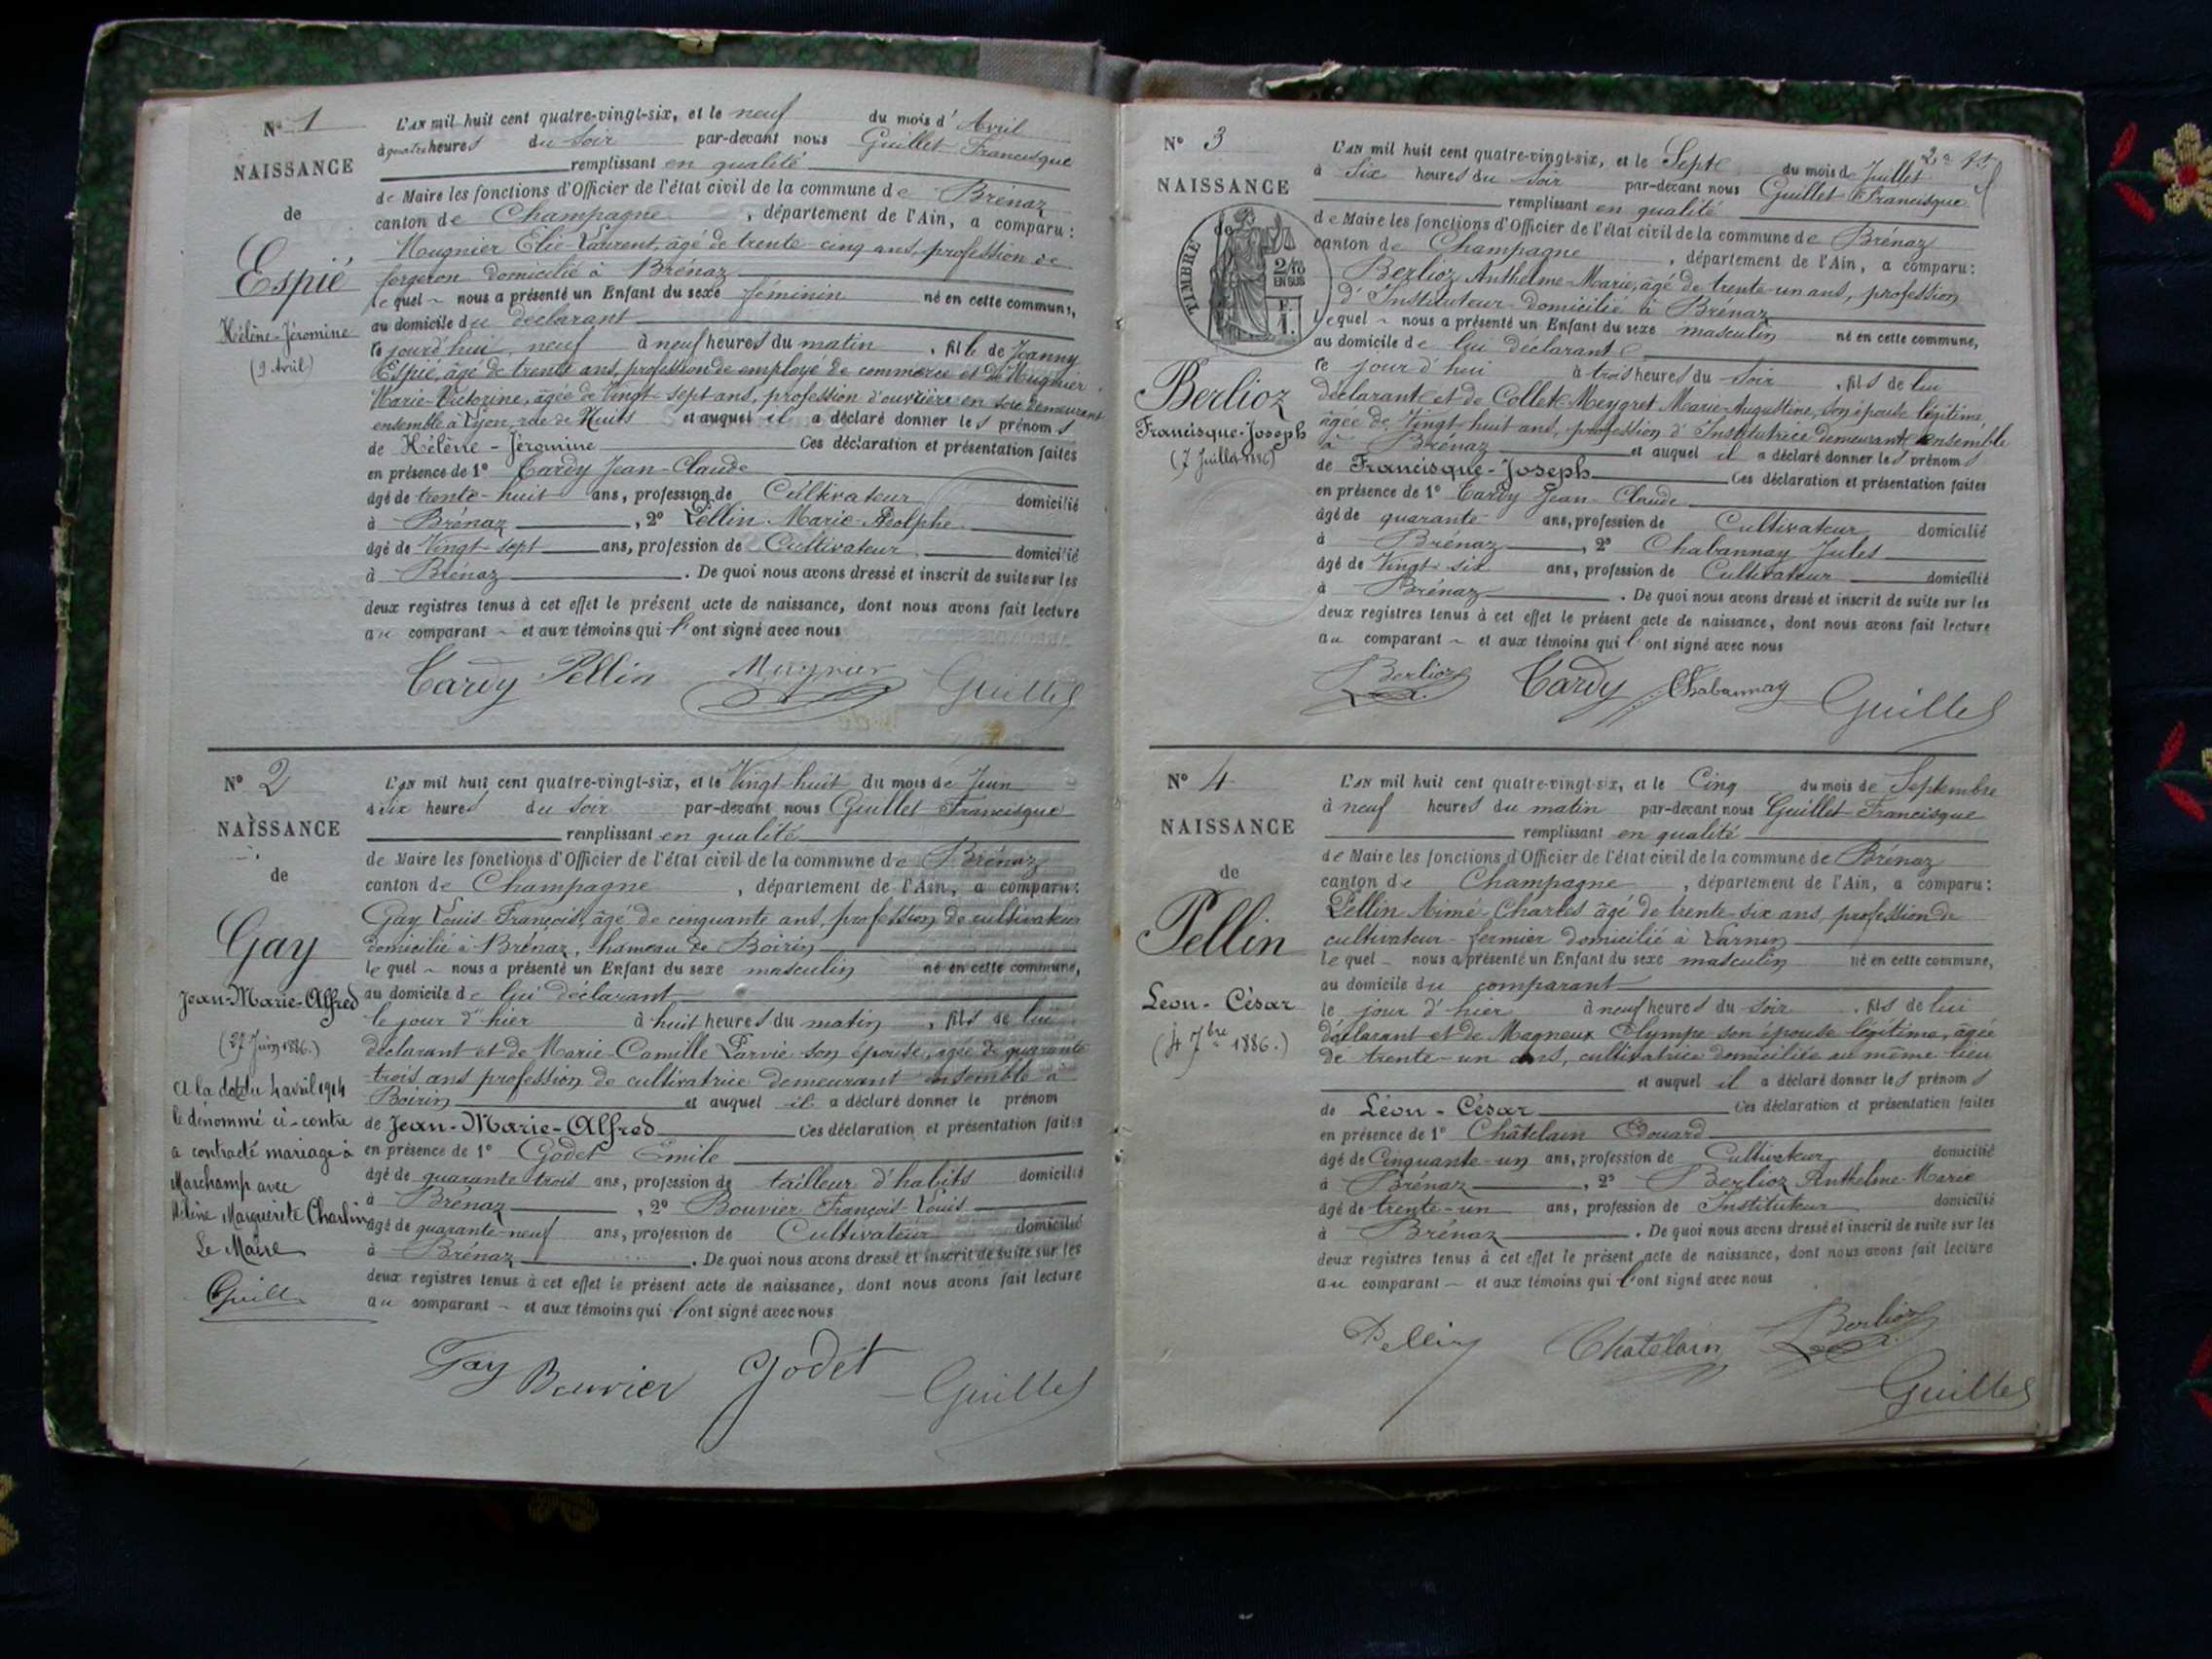 N° 1
NAISSANCE
de
Espié
Hélène-Jéromine
(9 Avril)
L'AN mil huit cent quatre-vingt-six, et le neuf du mois d'Avril
à quatre heures du soir par-devant nous Guillet Francisque
remplissant en qualité
de Maire les fonctions d'Officier de l'état civil de la commune de Brénaz
canton de Champagne, département de l'Ain, a comparu :
Mugnier Elie-Laurent, âgé de trente-cinq ans, profession de
forgeron domicilié à Brénaz
lequel ~ nous a présenté un Enfant du sexe féminin né en cette commune,
au domicile du déclarant
ce jourd'hui, neuf à neuf heures du matin, fille de Joanny
Espié, âgé de trente ans, profession de employé de commerce et de Mugnier
Marie-Victorine, âgée de vingt-sept ans, profession d'ouvrière en soie demeurant
ensemble à Lyon, rue de Nuits et auquel il a déclaré donner les prénoms
de Hélène - Jéromine Ces déclaration et présentation faites
en présence de 1° Tardy Jean-Claude
âgé de trente-huit ans, profession de Cultivateur domicilié
à Brénaz, 2° Pellin Marie-Adolphe
âgé de Vingt-sept ans, profession de Cultivateur domicilié
à Brénaz. De quoi nous avons dressé et inscrit de suite sur les
deux registres tenus à cet effet le présent acte de naissance, dont nous avons fait lecture
au comparant ~ et aux témoins qui l'ont signé avec nous
Tardy Pellin Mugnier Guillet
N° 2
NAISSANCE
de
Gay
Jean-Marie-Alfred
(27 Juin 1886.)
A la date du 4 avril 1914
le dénommé ci-contre
a contracté mariage à
Marchamp avec
Hélène Marguerite Charlin
Le Maire
Guill
L'AN mil huit cent quatre-vingt-six, et le Vingt huit du mois de Juin
à six heures du soir par-devant nous Guillet Francisque
remplissant en qualité
de Maire les fonctions d'Officier de l'état civil de la commune de Brénaz
canton de Champagne, département de l'Ain, a comparu :
Gay Louis-François, âgé de cinquante ans, profession de cultivateur
domicilié à Brénaz, hameau de Boirin
lequel ~ nous a présenté un Enfant du sexe masculin né en cette commune,
au domicile de lui déclarant
le jour d'hier à huit heures du matin, fils de lui
déclarant et de Marie-Camille Parvie son épouse, agée de quarante
trois ans profession de cultivatrice demeurant ensemble à
Boirin et auquel il a déclaré donner le prénom
de Jean-Marie-Alfred Ces déclaration et présentation faites
en présence de 1° Godet Emile
âgé de quarante trois ans, profession de tailleur d'habits domicilié
à Brénaz, 2° Bouvier François Louis
âgé de quarante-neuf ans, profession de Cultivateur domicilié
à Brénaz. De quoi nous avons dressé et inscrit de suite sur les
deux registres tenus à cet effet le présent acte de naissance, dont nous avons fait lecture
au comparant ~ et aux témoins qui l'ont signé avec nous
Gay Bouvier Godet Guillet
N° 3
NAISSANCE
de
TIMBRE
2/10
EN SUS
Berlioz
Francisque-Joseph
(7 Juillet 1886)
L'AN mil huit cent quatre-vingt-six, et le Sept du mois de Juillet
à Six heures du soir par-devant nous Guillet Francisque
remplissant en qualité
de Maire les fonctions d'Officier de l'état civil de la commune de Brénaz
canton de Champagne, département de l'Ain, a comparu :
Berlioz Anthelme-Marie, âgé de trente-un ans, profession
d'Instituteur domicilié à Brénaz
lequel ~ nous a présenté un Enfant du sexe masculin né en cette commune,
au domicile de lui déclarant
ce jour d'hui à trois heures du soir, fils de lui
déclarant et de Collet-Meygret Marie-Augustine, son épouse légitime,
âgée de Vingt huit ans, profession d'Institutrice demeurant ensemble
à Brénaz et auquel il a déclaré donner les prénoms
de Francisque-Joseph Ces déclaration et présentation faites
en présence de 1° Tardy Jean-Claude
âgé de quarante ans, profession de Cultivateur domicilié
à Brénaz, 2° Chabannay Jules
âgé de Vingt six ans, profession de Cultivateur domicilié
à Brénaz. De quoi nous avons dressé et inscrit de suite sur les
deux registres tenus à cet effet le présent acte de naissance, dont nous avons fait lecture
au comparant ~ et aux témoins qui l'ont signé avec nous
Berlioz Tardy Chabannay Guillet
N° 4
NAISSANCE
de
Pellin
Léon-César
(4 7bre 1886.)
L'AN mil huit cent quatre-vingt-six, et le Cinq du mois de Septembre
à neuf heures du matin par-devant nous Guillet Francisque
remplissant en qualité
de Maire les fonctions d'Officier de l'état civil de la commune de Brénaz
canton de Champagne, département de l'Ain, a comparu :
Pellin Aimé-Charles âgé de trente-six ans, profession de
cultivateur-fermier domicilié à Larnin
lequel nous a présenté un Enfant du sexe masculin né en cette commune,
au domicile du comparant
le jour d'hier à neuf heures du soir, fils de lui
déclarant et de Magneux Olympe son épouse légitime, agée
de trente-un ans, cultivatrice domiciliée au même lieu
et auquel il a déclaré donner les prénoms
de Léon-César Ces déclaration et présentation faites
en présence de 1° Châtelain Edouard
âgé de Cinquante-un ans, profession de Cultivateur domicilié
à Brénaz, 2° Berlioz Anthelme-Marie
âgé de trente-un ans, profession de Instituteur domicilié
à Brénaz. De quoi nous avons dressé et inscrit de suite sur les
deux registres tenus à cet effet le présent acte de naissance, dont nous avons fait lecture
au comparant ~ et aux témoins qui l'ont signé avec nous
Pellin Chatelain Berlioz
Guillet